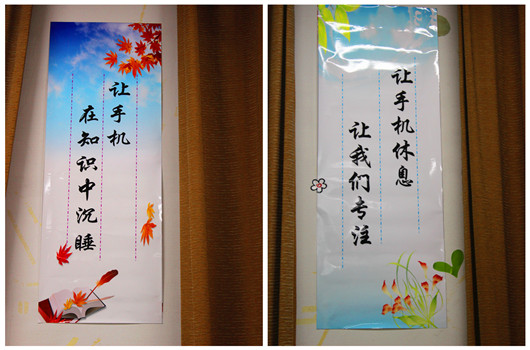 让手机
在知识中沉睡
让手机休息
让我们专注